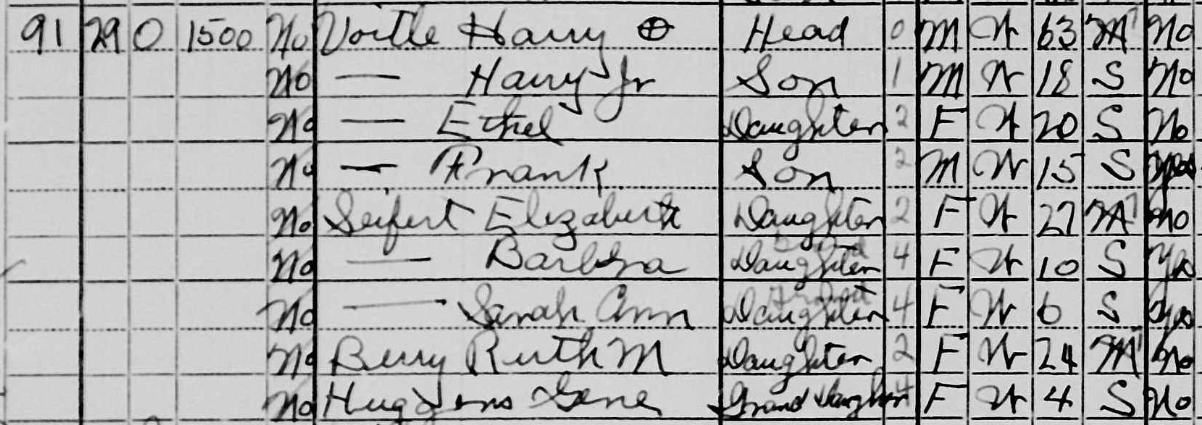 91 29 0 1500 No Voitle Harry ⊕ Head 0 M W 63 M 7 No
No — Harry Jr Son 1 M W 18 S No
No — Ethel Daughter 2 F W 20 S No
No — Frank Son 2 M W 15 S Yes
No Seifert Elizabeth Daughter 2 F W 27 M 7 No
No — Barbra Daughter 4 F W 10 S Yes
No — Sarah Ann Daughter 4 F W 6 S Yes
No Berry Ruth M Daughter 2 F W 24 M 7 No
No Gene Grand Daughter 4 F W 4 S No